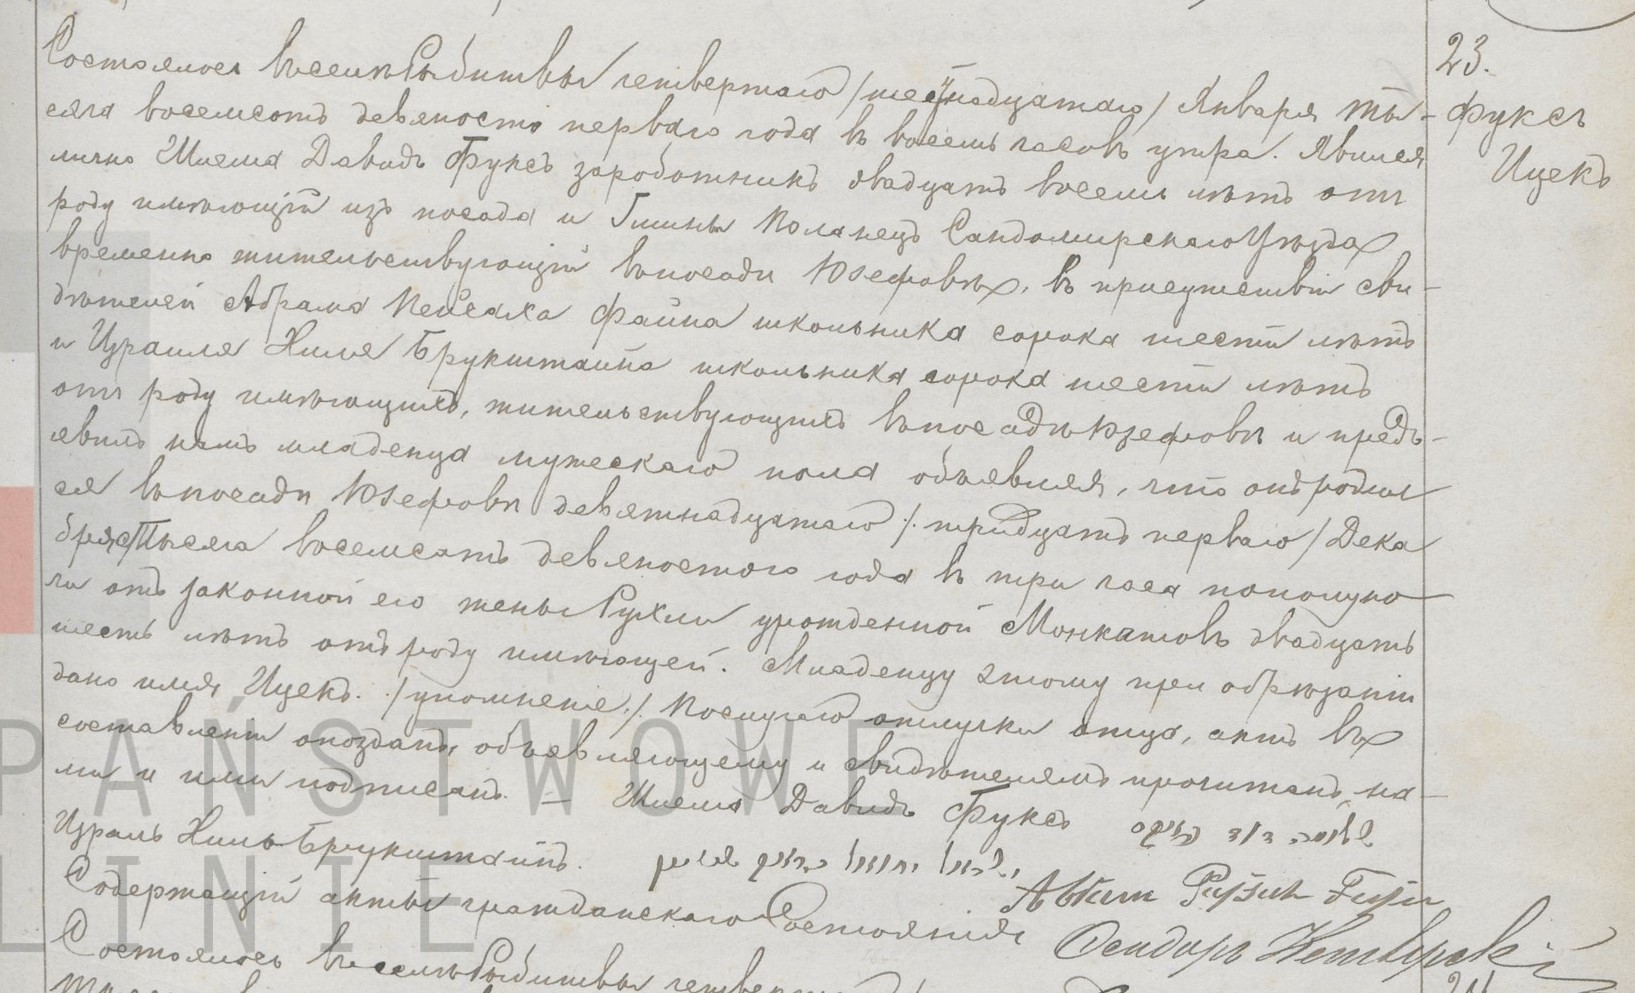 23.
Фуксъ
Ицекъ
Состоялось въ селѣ Рыбитвы четвертаго /шестнадцатаго/ Января ты-
сяча восемсотъ девяносто перваго года въ восемь часовъ утра. Явился
лично Шлема Давидъ Фуксъ заработникъ двадцать восемь лѣтъ отъ
роду имѣющій изъ посада и Гмины Поланецъ Сандомирскаго Уѣзда
временно жительствующій въ посадѣ Юзефовѣ, въ присутствіи сви-
дѣтелей Абрама Пейсаха Файна школьника сорока шести лѣтъ
и Израиля Хиля Брукштайна школьника сорока шести лѣтъ
отъ роду имѣющихъ, жительствующихъ въ посадѣ Юзефовѣ и предъ-
явилъ намъ младенца мужескаго пола объявляя, что онъ родил
ся въ посадѣ Юзефовѣ девятнадцатаго /:тридцать перваго/ Дека
бря Тысяча восемсотъ девяностого года въ три часа пополуно-
чи отъ законной его жены Рухли урожденной двадцать
шесть лѣтъ отъ роду имѣющей. Младенцу этому при обрѣзаніи
дано имя Ицекъ. По случаю отлучки отца, актъ въ
составленіи опозданъ, объявляющему и свидѣтелямъ прочитанъ на-
ми и ими подписанъ. — Шлема Давидъ Фуксъ
Израиль Хиль Брукштайнъ.
Содержащій акты гражданскаго Состоянія
Состоялось въ селѣ Рыбитвы
PAŃSTWOWE
LINIE